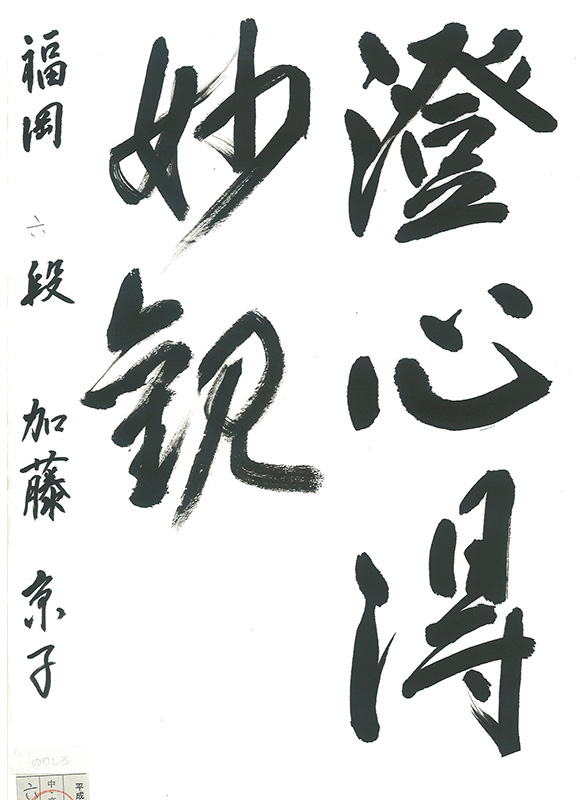 澄心得
妙観
福岡 六段 加藤京子
のりしろ
平成
中・
六